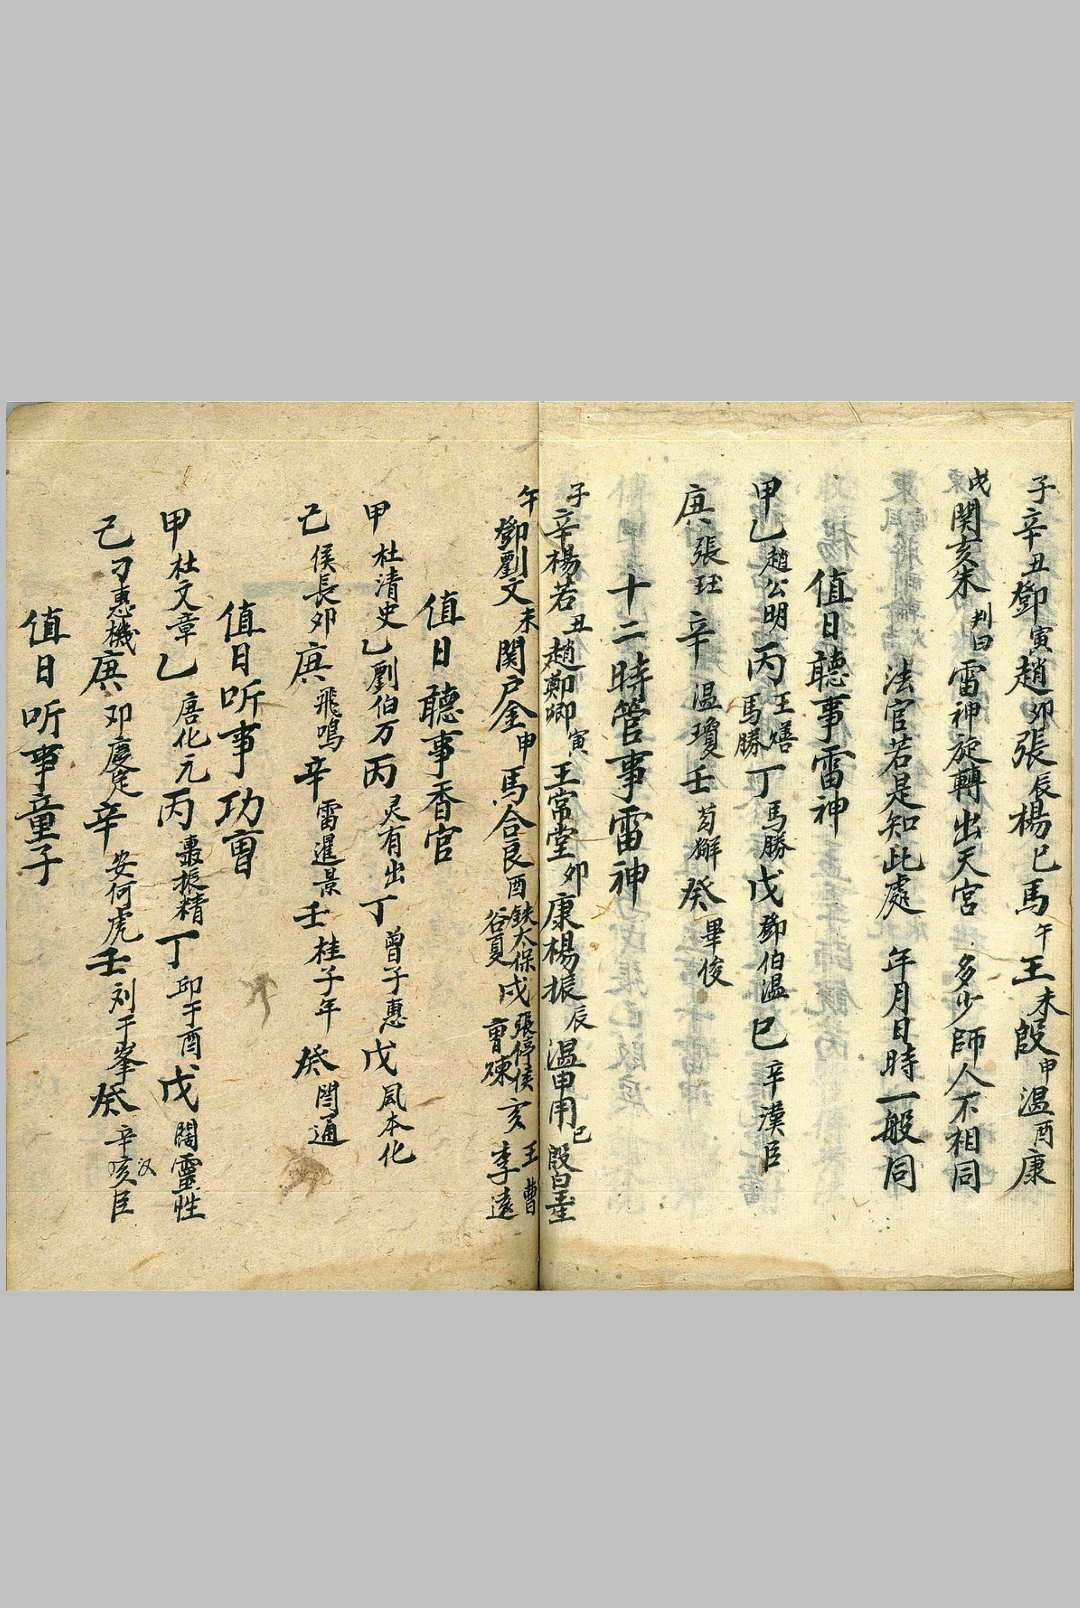 子辛丑鄧寅趙卯張辰楊巳馬午王未殷申温酉康
戌関亥朱 判曰雷神旋轉出天宮 多少師人不相同
法官若是知此處 年月日時一般同
值日聽事雷神
甲乙趙公明丙王繕馬勝丁馬勝戊鄧伯温巳辛漢臣
庚張珏辛温瓊壬苟獬癸畢俊
十二時管事雷神
子辛楊若丑趙鄭卿寅王常堂卯康楊振辰温申用巳殷
午鄧劉文未関屋申馬合良酉鉄太保谷夏戌張停侯曹煉亥王曹李遠
值日聽事香官
甲杜清史乙劉伯万丙灵有出丁曾子惠戊凬本化
己侯長卯庚飛鳴辛雷暹景壬桂子年癸閆通
值日听事功曹
甲杜文章乙唐化元丙振精丁邱于酉戊闊靈性
己刁惠機庚邓慶定辛安何虎壬刘于峯癸辛汉亥臣
值日听事童子